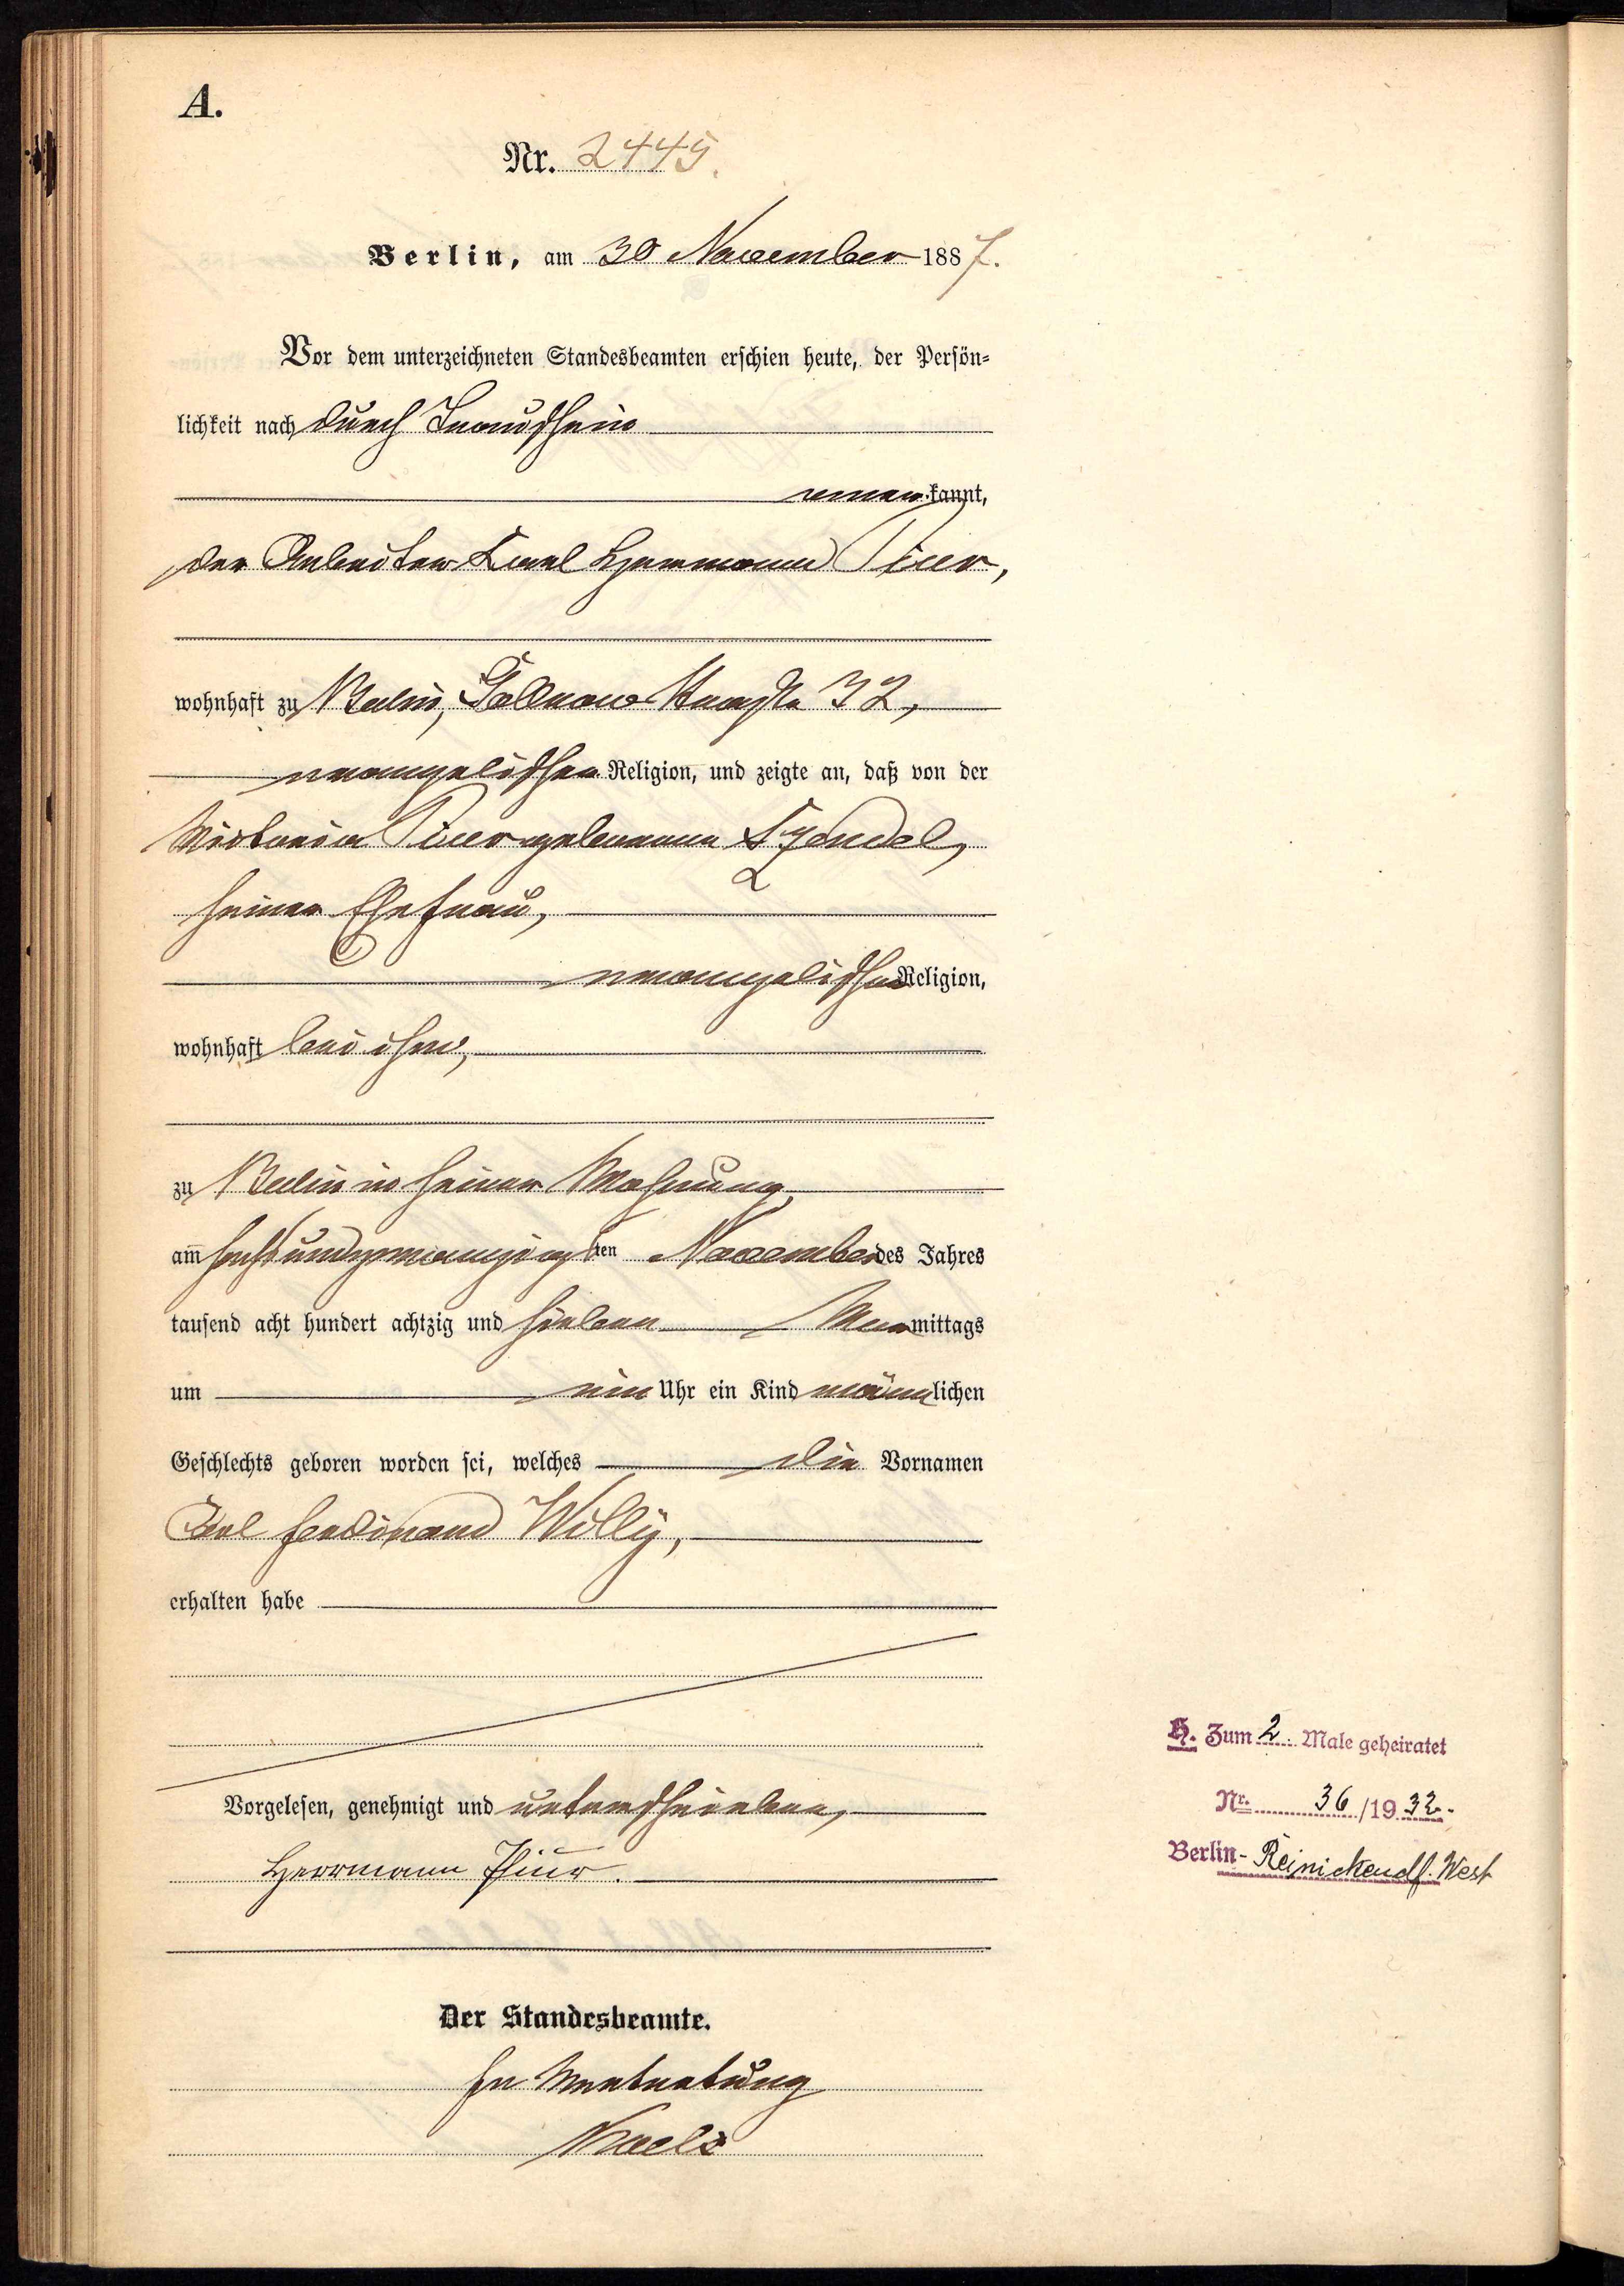 A.
Nr. 2445.
Berlin, am 30 November 1887.
Vor dem unterzeichneten Standesbeamten erschien heute, der Persön-
lichkeit nach durch Trauschein
anerkannt,
der Arbeiter Karl Hermann
wohnhaft zu Berlin, Gollnow Straße 32,
evangelischer Religion, und zeigte an, daß von der
geborenen
seiner Ehefrau,
evangelischer Religion,
wohnhaft bei ihm,
zu Berlin in seiner Wohnung
am sechsundzwanzigsten November des Jahres
tausend acht hundert achtzig und sieben Vormittags
um ein Uhr ein Kind männlichen
Geschlechts geboren worden sei, welches die Vornamen
Carl Ferdinand Willy,
erhalten habe
Vorgelesen, genehmigt und unterschrieben,
Herrmann
Der Standesbeamte.
In Vertretung
H. Zum 2. Male geheiratet
Nr. 36/1932.
Berlin-Reinickendf. West